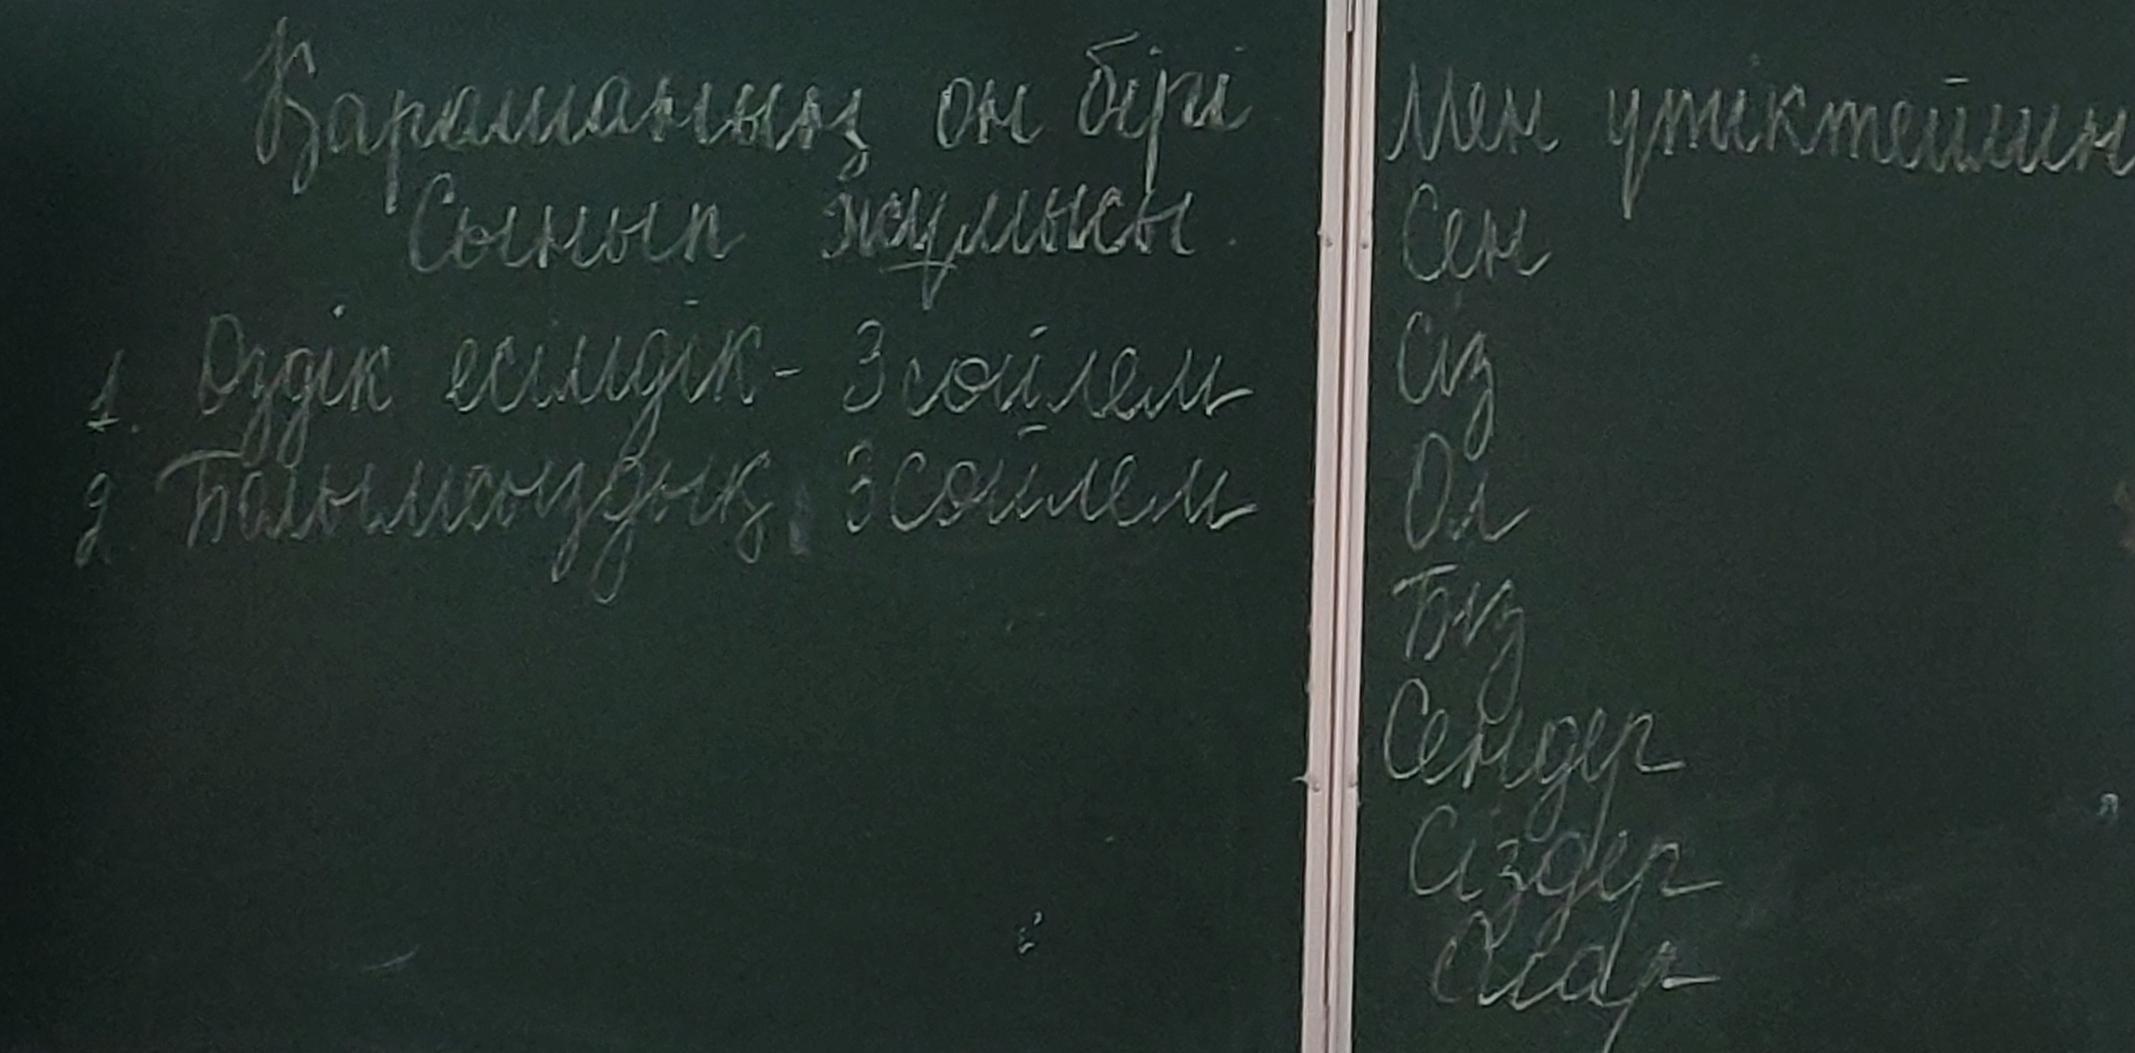 Қарашаның он бірі
Сынып жұмысы.
1. Өздік есімдік - 3 сөйлем
2. Болымсыздық 3 сөйлем
Мен үтіктеймін
Сен
Сіз
Ол
Біз
Сендер
Сіздер
Олар